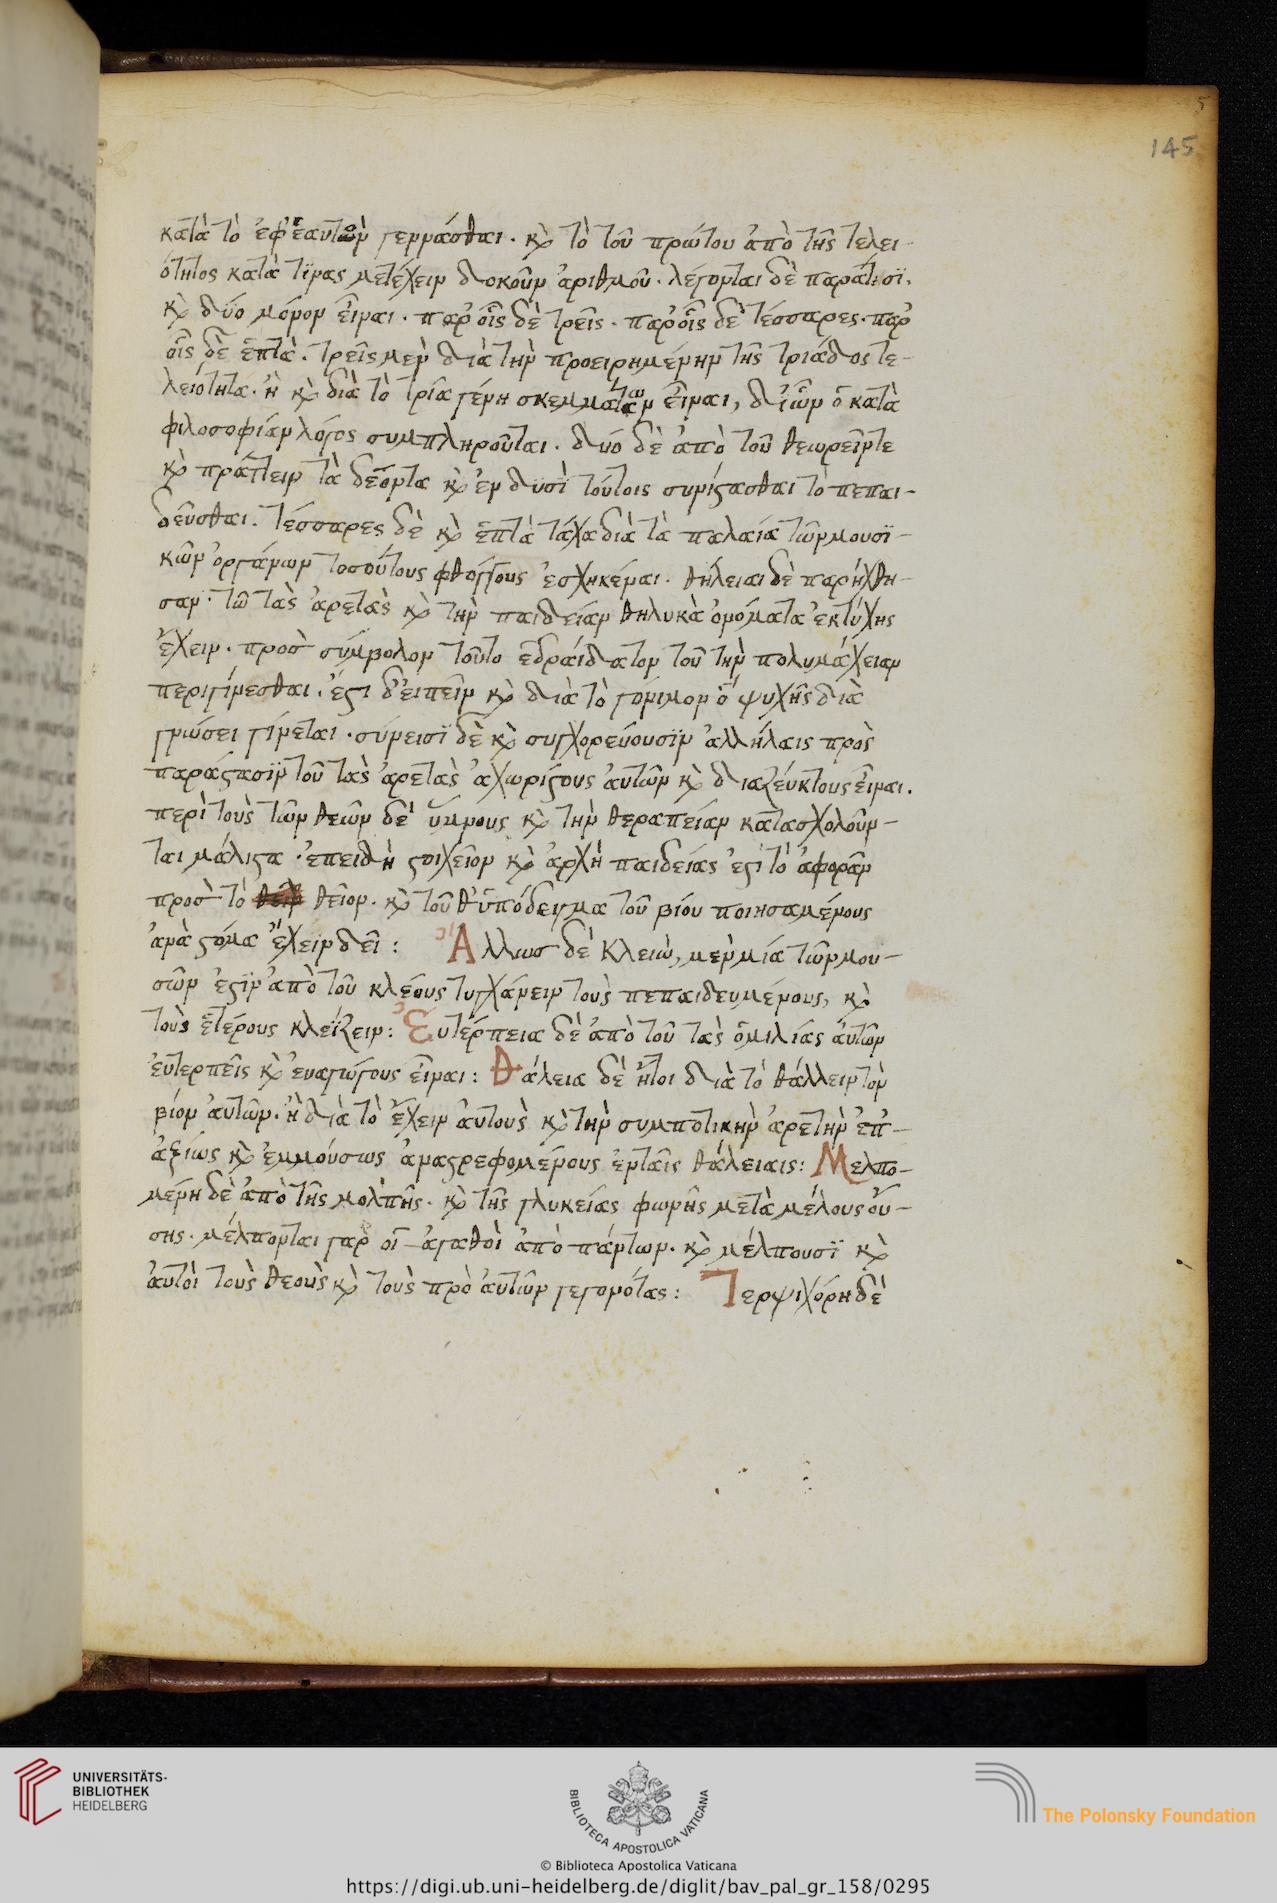 5
145
κατὰ τὸ ἐφ' ἑαυτῶν γεννᾶσθαι. κ̀ τὸ τοῦ πρώτου ἀπὸ τῆς τελει-
ότητος κατὰ τϊνας μετέχειν δοκοῦν ἀριθμοῦ. λέγονται δὲ παράτισϊ.
κ̀ δύο μόνον εἶναι. παρ' οἷς δὲ τρεῖς. παρ' οἷς δὲ τέσσαρες. παρ'
οἷς δὲ ἑπτὰ. τρεῖς μὲν διὰ τὴν προειρημένην τῆς τριάδος τε-
λειότητα. ἢ κ̀ διὰ τὸ τρία γένη σκεμμάτων εἶναι, δι' ὧν ὁ κατὰ
φιλοσοφίαν λόγος συμπληροῦται. δύο δὲ ἀπὸ τοῦ θεωρεῖντε
κ̀ πράττειν τὰ δέοντα κ̀ ἐν δϋσὶ τούτοις συνίστασθαι τὸ πεπαι-
δεῦσθαι. τέσσαρες δὲ κ̀ ἑπτὰ τάχα διὰ τὰ παλαία τῶν μουσϊ-
κῶν ὀργάνων τοσούτους φθόγγους ἐσχηκέναι. θήλειαι δὲ παρήχθη-
σαν. τῶ τὰς ἀρετὰς κ̀ τὴν παιδείαν θηλυκὰ ὀνόματα ἐκτύχης
ἔχειν. προσ σύμβολον τοῦτο ἑδραίδατον τοῦ τὴν πολυμάχειαν
περιγίνεσθαι. ἔστι δ' εἰπεῖν κ̀ διὰ τὸ γόνιμον ὃ ψυχῆς διὰ
γνώσει γίνεται. σύνεισϊ δὲ κ̀ συγχορεύουσϊν ἀλλήλαις πρὸς
παράστασϊν τοῦ τὰς ἀρετὰς ἀχωρίστους αὐτῶν κ̀ διαζεύκτους εἶναι.
περὶ τοὺς τῶν θεῶν δὲ ὕμνους κ̀ τὴν θεραπείαν κατασχολοῦν-
ται μάλιστα. ἐπειδὴ στοιχεῖον κ̀ ἀρχὴ παιδείας ἐστὶ τὸ ἀφορᾶν
προσ τὸ θεῖον. κ̀ τοῦθ' ὑπόδειγμα τοῦ βίου ποιησαμένους
ἀνὰ στόμα ἔχειν δεῖ: Αλλωσ δὲ Κλειὼ, μὲν μία τῶν μου-
σῶν ἐστϊν ἀπὸ τοῦ κλέους τυγχάνειν τοὺς πεπαιδευμένους, κ̀
τοὺς ἑτέρους κλεΐζειν: Εὐτέρπεια δὲ ἀπὸ τοῦ τὰς ὁμιλίας αὐτῶν
εὐτερπεῖς κ̀ εὐαγώγους εἶναι: Θάλεια δὲ ἤτοι διὰ τὸ θάλλειν τὸν
βίον αὐτῶν. ἢ διὰ τὸ ἔχειν αὐτοὺς κ̀ τὴν συμποτικὴν ἀρετὴν ἐπ'-
ἀξίως κ̀ ἐμμούσως ἀναστρεφομένους ἐνταῖς θάλειαις: Μελπο-
μένη δὲ ἀπὸ τῆς μολπῆς. κ̀ τῆς γλυκείας φωνῆς μετὰ μέλους οὔ-
σης. μέλπονται γὰρ οἱ ἀγαθοὶ ἀπὸ πάντων. κ̀ μέλπουσϊ κ̀
αὐτοὶ τοὺς θεοὺς κ̀ τοὺς πρὸ αὐτῶν γεγονότας: Τερψιχόρη δὲ
UNIVERSITÄTS-
BIBLIOTHEK
HEIDELBERG
BIBLIOTECA APOSTOLICA VATICANA
The Polonsky Foundation
© Biblioteca Apostolica Vaticana
https://digi.ub.uni-heidelberg.de/diglit/bav_pal_gr_158/0295